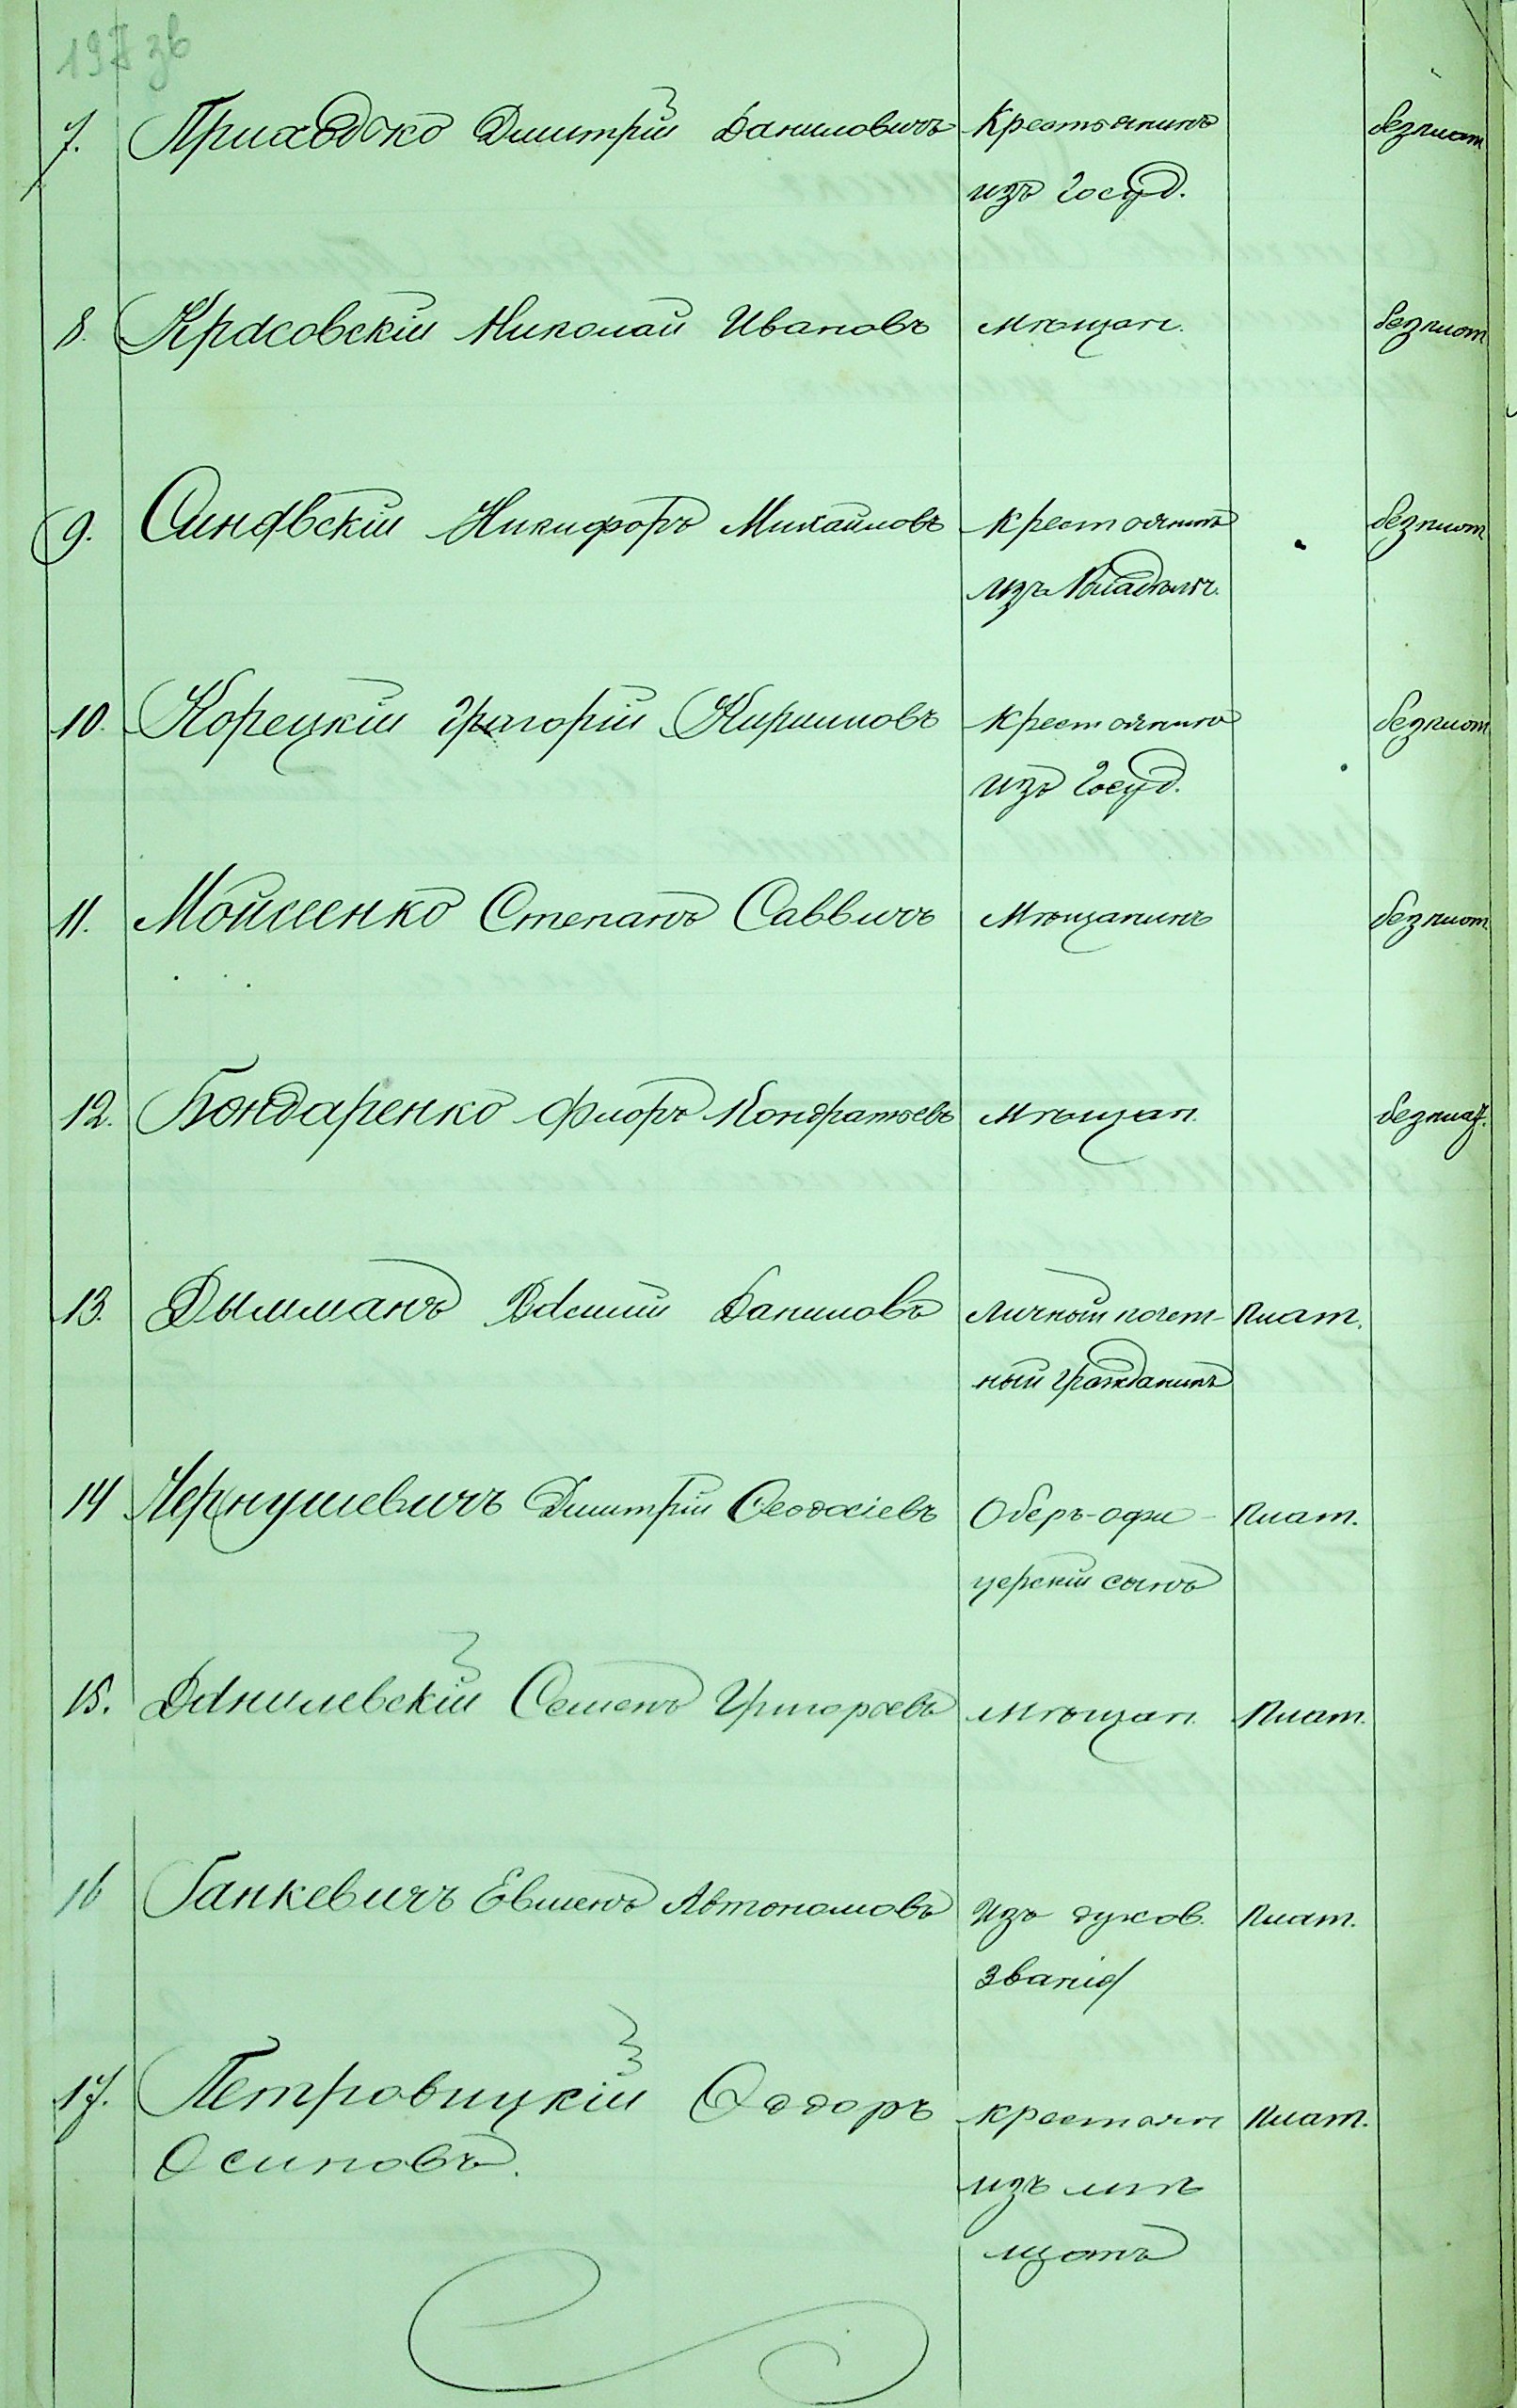 197 зв
7. Приходько Дмитрій Даниловичъ Крестьянинъ безплат
изъ Госуд.
8. Красовскій Николай Ивановъ мѣщан. безплат
9. Синявскій Никифоръ Михайловъ крестьянинъ безплат
изъ Владѣльч.
10. Корецкій Григорій Кирилловъ крестьянинъ безплат
изъ Госуд.
11. Мойсеенко Степанъ Саввичъ Мѣщанинъ безплат.
12. Бондаренко Флоръ Кондратьевъ мѣщан. безплат.
13. Даниловъ личный почет- плат.
ный гражданинъ
14 Чернушевичъ Дмитрій Феодосіевъ Оберъ-офи- плат.
церскій сынъ
15. Данилевскій Семенъ Григорьевъ мѣщан. плат.
16 Ганкевичъ Евменъ Автономовъ Изъ духов. плат.
званія
17. Петровицкій Федоръ крестьян плат.
Осиповъ. изъ мѣ
щанъ